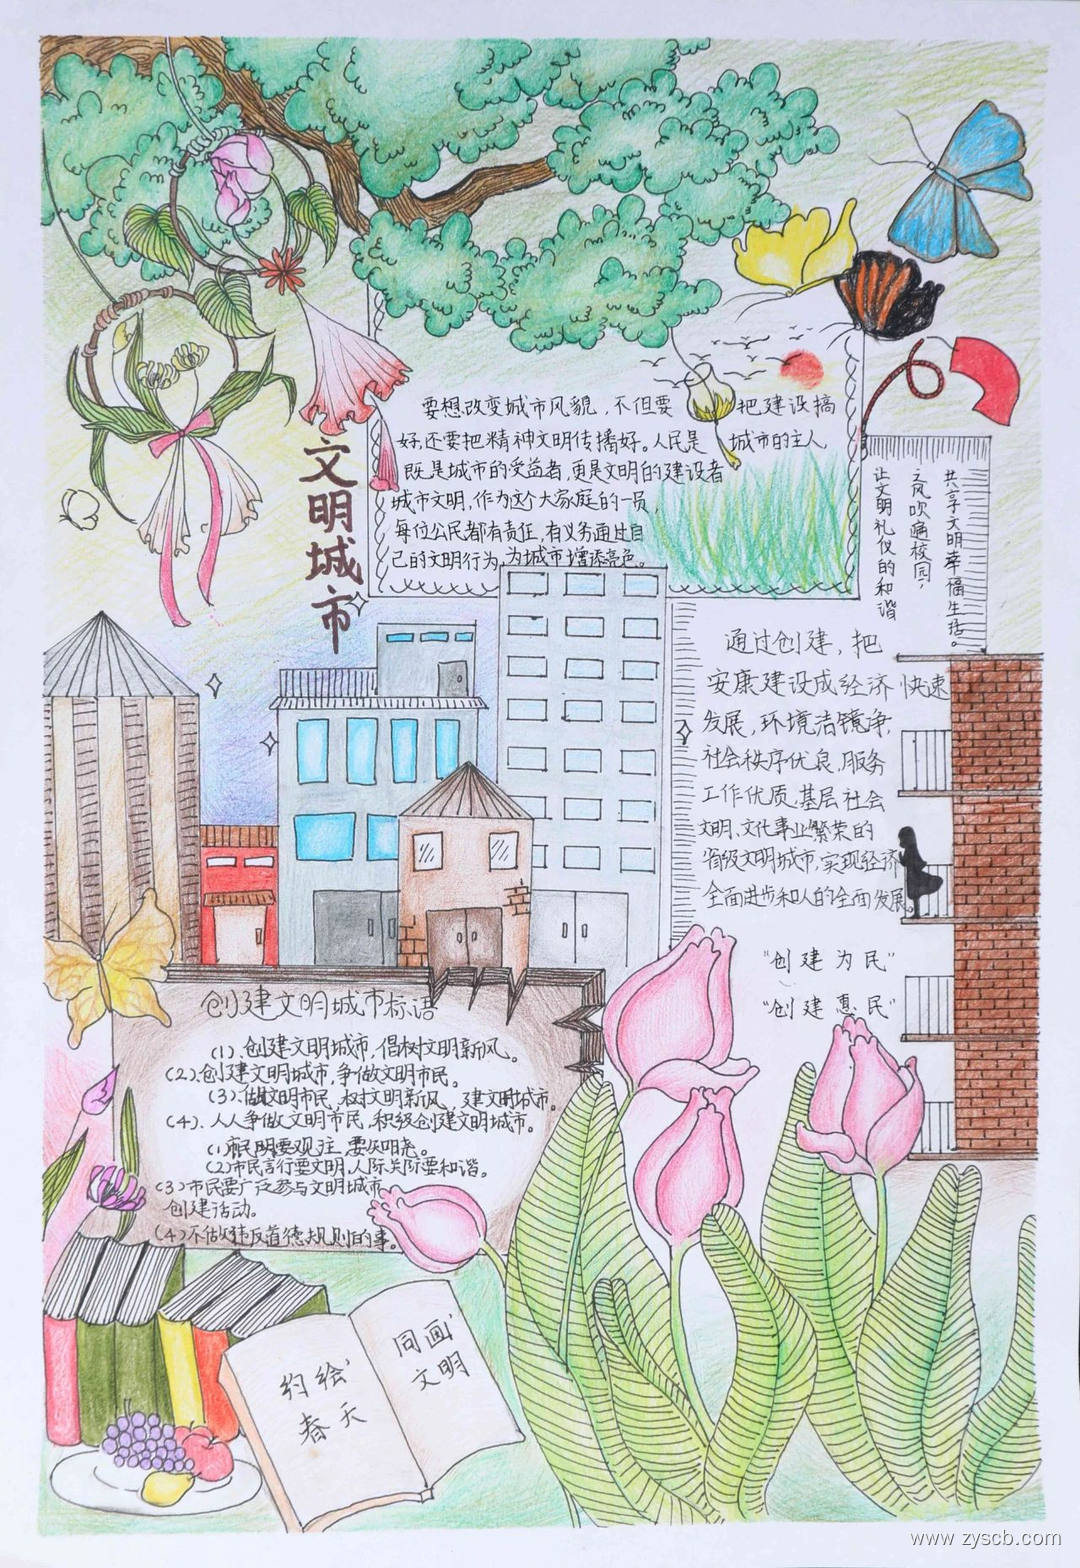 文明城市
要想改变城市风貌，不但要把建设搞
好还要把精神文明传播好。人民是城市的主人
既是城市的受益者，更是文明的建设者
城市文明，作为这个大家庭的一员，
每位公民都有责任，有义务通过自
己的文明行为，为城市增添亮色。
让文明礼仪的和谐
之风吹遍校园；
共享文明幸福生活。
通过创建，把
安康建设成经济快速
发展，环境洁镜争，
社会秩序优良，服务
工作优质，基层社会
文明、文化事业繁荣的
省级文明城市，实现经济
全面进步和人的全面发展
“创建为民”
“创建惠民”
创建文明城市标语
(1)、创建文明城市，倡树文明新风。
(2)、创建文明城市，争做文明市民。
(3)：做文明市民，树文明新风，建文明城市。
(4)、人人争做文明市民，积级创建文明城市。
(2)市民言行要文明，人际关际要和谐。
(3)：市民要广泛参与文明城市
创建活动。
(4)不做违反道德规则的事。
约绘'
春天
同画'
文明
www.zyscb.com